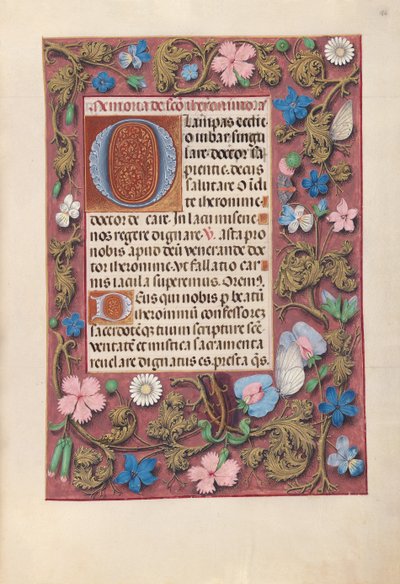 Memoria de sco iheronimo
O lampas ecclie
o iubar singu
lare doctor sa
pientie decus
salutare O
te iheronime
doctor de care In lacu misene
nos regere dignare V asta pro
nobis apud deū venerande doc
tor iheronime. Vt fallatio car
nis iacula superemus. Orem
Deus qui nobis p beatū
iheronimū confessorez
sacerdotēq tuum scripture scē
veritatē et mistica sacramenta
revelare dignatus es. presta qs.